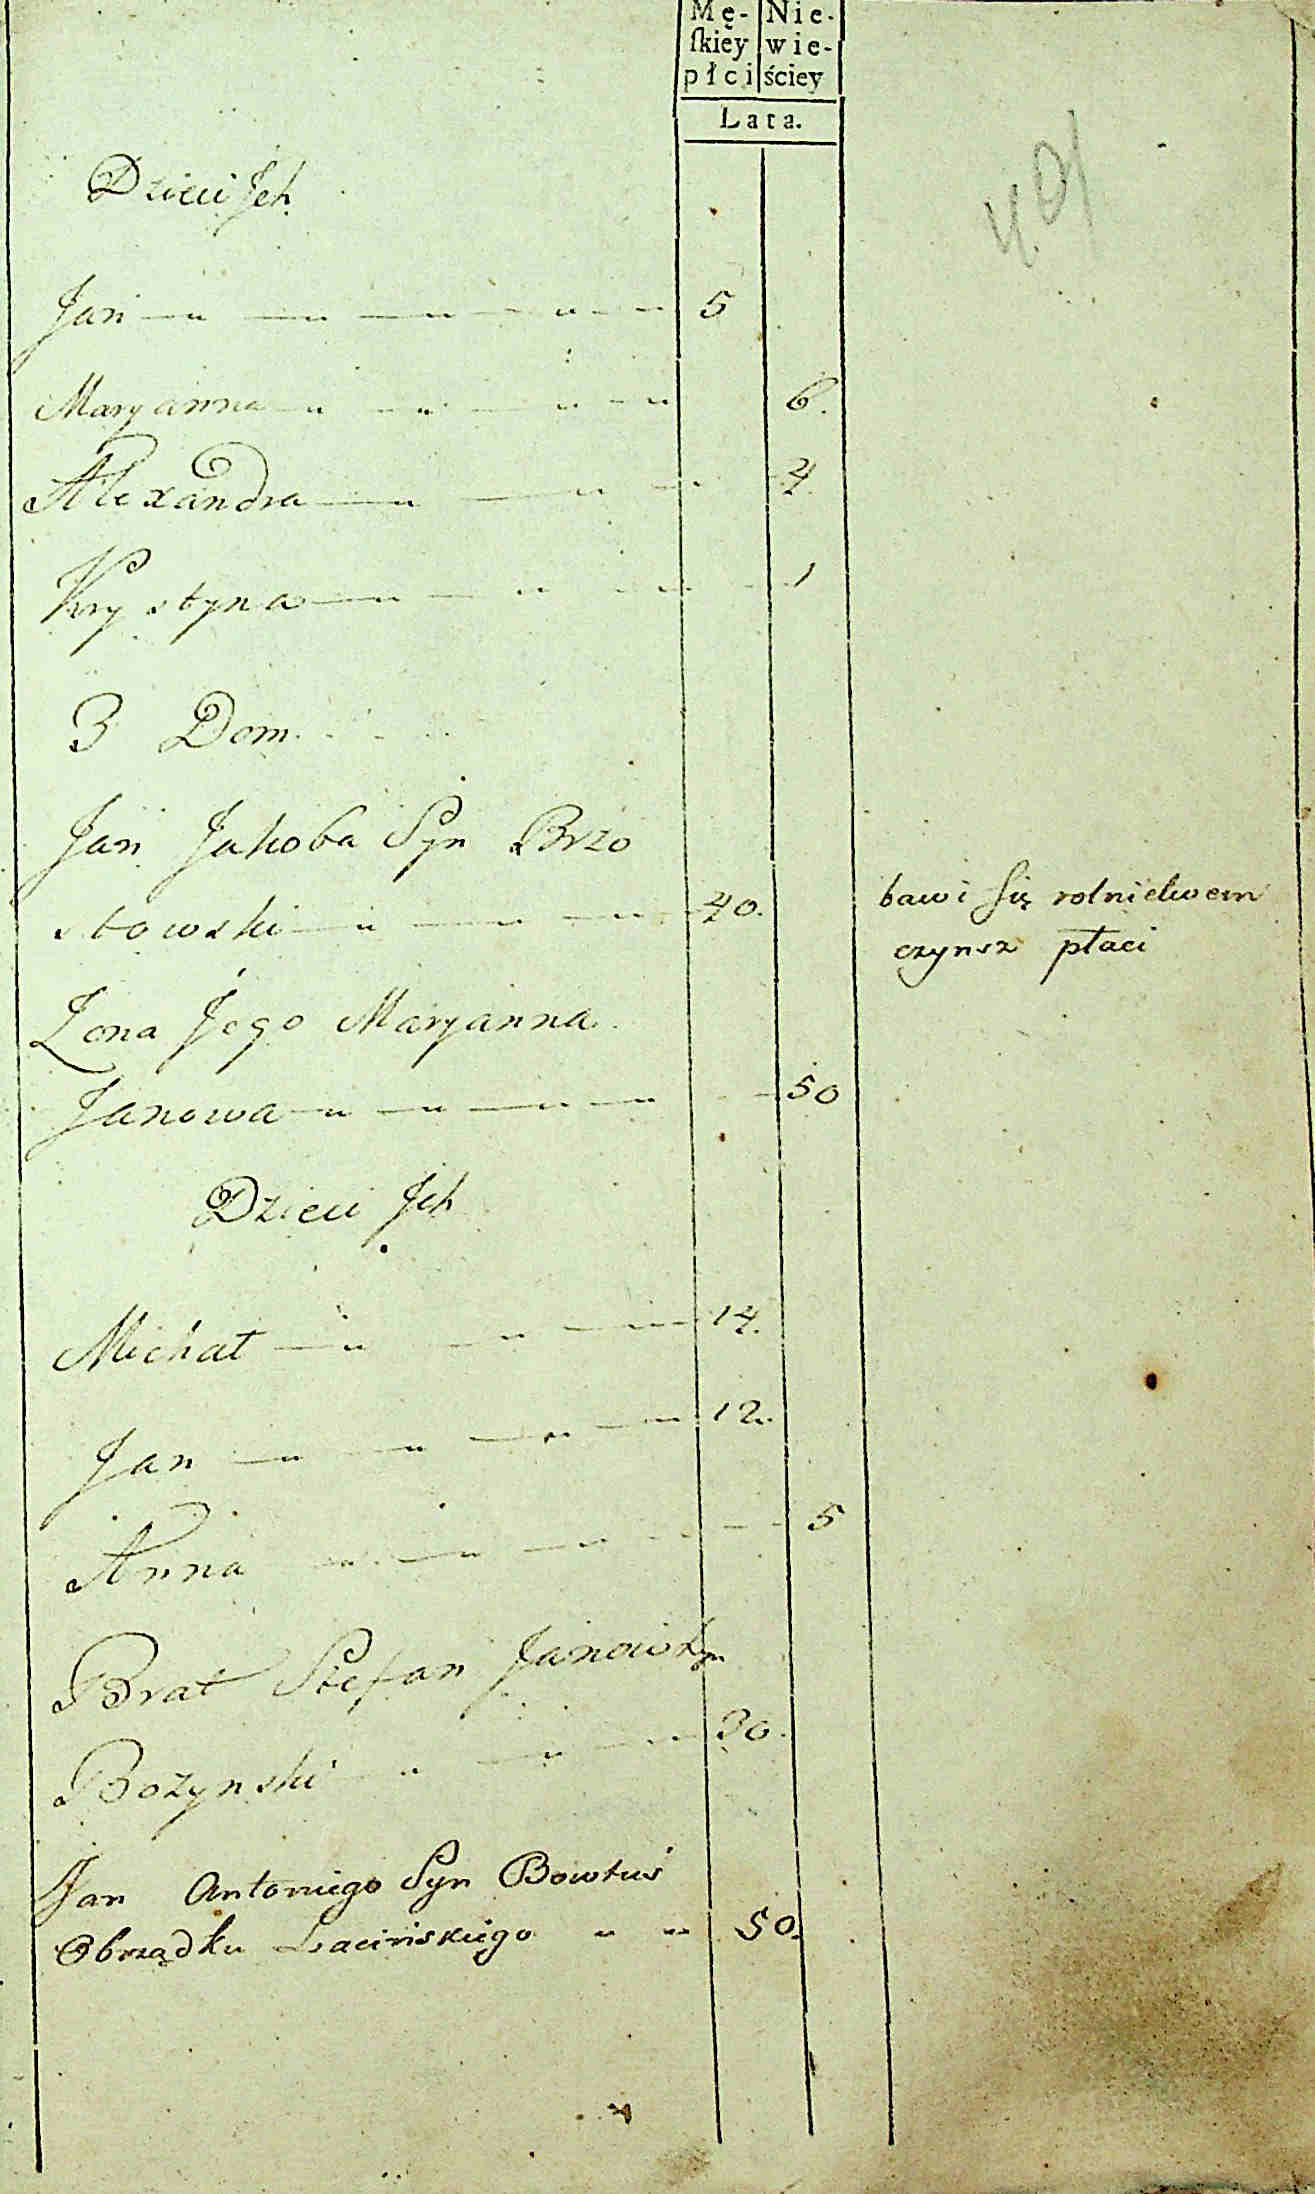 Mę- Nie-
ſkiey wie-
płci ściey
Lata.
Dzieci Jch
Jan 5
Maryanna 6.
Alexandra 4.
Krystyna 1
3 Dom.
Jan Jakoba Syn Brzo
stowski 40. bawi się rolnictwem
czynsz płaci
Zona Jego Maryanna
Janowa 50
Dzieci Jch
Michał 14.
Jan 12.
Anna 5
Brat Stefan
Bozynski 30.
Jan Antoniego Syn
Obrządku Łacińskiego 50.